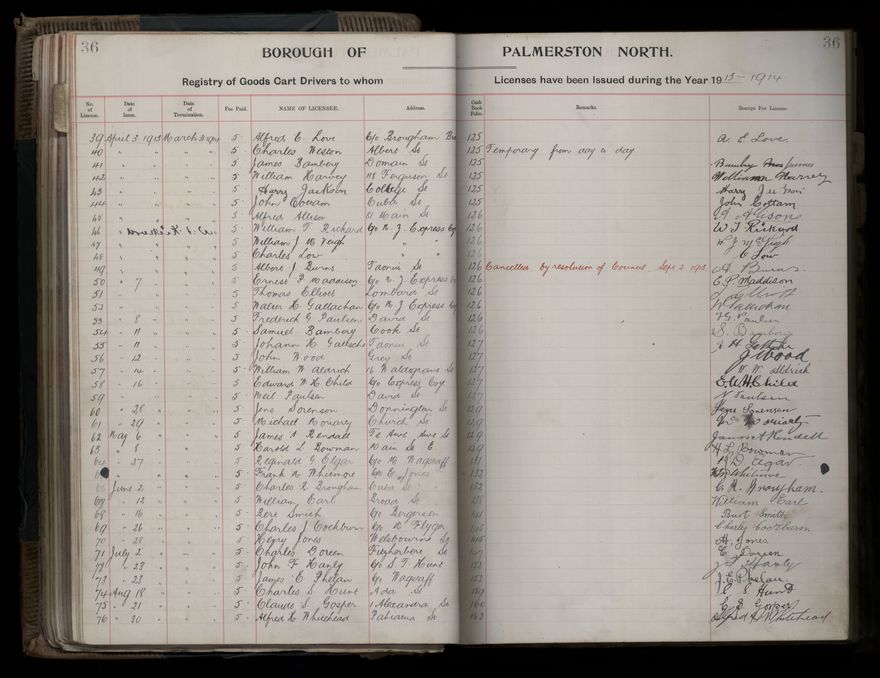 36
BOROUGH OF PALMERSTON NORTH.
36
Registry of Goods Cart Drivers to whom Licenses have been Issued during the Year 1913-1914
No. of License. Date of Issue. Date of Termination. Fee Paid. NAME OF LICENSEE. Address. Cash Book Folio. Remarks. Receipt For License.
39 April 3 1913 March 31 1914 5 - Alfred E. Love C/o Brougham 125 A. E. Love.
40 " " " " 5 - Charles Weston Albert St 125 Temporary from day to day
41 " " " " 5 - James Bambery Domain St 125
42 " " " " 5 - William Harvey 118 Ferguson St 125 William Harvey
43 " " " " 5 - Harry Jackson College St 125 Harry
44 " " " " 5 - John Cottam Cuba St 125 John Cottam
45 " " " " 5 - Alfred Allison 81 Main St 126 A. Allison
46 " 5 - William T. Richard C/o N. Z. Express Coy 126 W T Rickyord
47 " " " " 5 - William J. McVeigh " " 126 W J McVeigh
48 " " " " 5 - Charles Low " " 126 C Low
49 " " " " 5 - Albert J Burns Taonui St 126 Cancelled by resolution of Council. Sept 2. 1913. A Burns
50 " 7 " " 5 - Ernest P. Maddison C/o N. Z Express Coy 126 E. P. Maddison
51 " " " " 5 - Thomas Elliott Lombard St 126
52 " " " " 5 - Walter H Gallachan C/o N. Z Express Coy 126
53 " 8 " " 5 - Frederick G Paulsen David St 126 F G Paulsen
54 " 11 " " 5 - Samuel Bambery Cook St 126 S. Bambery
55 " 11 " " 5 - Johann H Taonui St 127 J H
56 " 12 " " 5 - John Wood Grey St 127 J Wood
57 " 14 " " 5 - William W Aldrich 16 Waldegrave St 127 W. W. Aldrich
58 " 16 " " 5 - Edward W. H. Child C/o Express Coy 127 E. W. H. Child
59 " " " 5 - Neil Paulsen David St 127 N Paulsen
60 " 28 " " 5 - Jens Sorenson Donnington St 129 Jens Sorensen
61 " 29 " " 5 - Michael Moriarty Church St 129 Moriarty
62 May 6 " " 5 - James A Kendall Te Awe Awe St 129 James A Kendall
63 " 8 " " 5 - Harold L Bowman Main St E 129 H L Bowman
64 " 27 " " 5 - Reginald G. Elgar C/o W Wagstaff 131 Elgar
65 " " " 5 - Frank W. Whitmore C/o E Jones 132 Whitmore
66 June 2 " " 5 - Charles R Brougham Cuba St 132 C. R. Brougham.
67 " 12 " " 5 - William Earl Broad St 138 William Earl
68 " 16 " " 5 - Bert Smith C/o Bergersen 141 Burt Smith
69 " 26 " " 5 - Charles J Cockburn C/o W Flyger 145 Charley Cockburn
70 " 28 " " 5 - Henry Jones Welbourne St 145 H. Jones
71 July 2 " " 5 - Charles Doreen Fitzherbert St 147 C. Doreen
72 " 23 " " 5 - John F Hanly C/o S. T Hunt 152 J F Hanly
73 " 23 " " 5 - James E Phelan C/o Wagstaff 152 J. E. Phelan.
74 Aug 18 " " 5 - Charles S Hunt Ada St 159 C S Hunt
75 " 21 " " 5 - Claude S. Gosper 1 Alexandra St 160 C S Gosper
76 " 30 " " 5 - Alfred H Whitehead Pahiatua St 163 Alfred H Whitehead